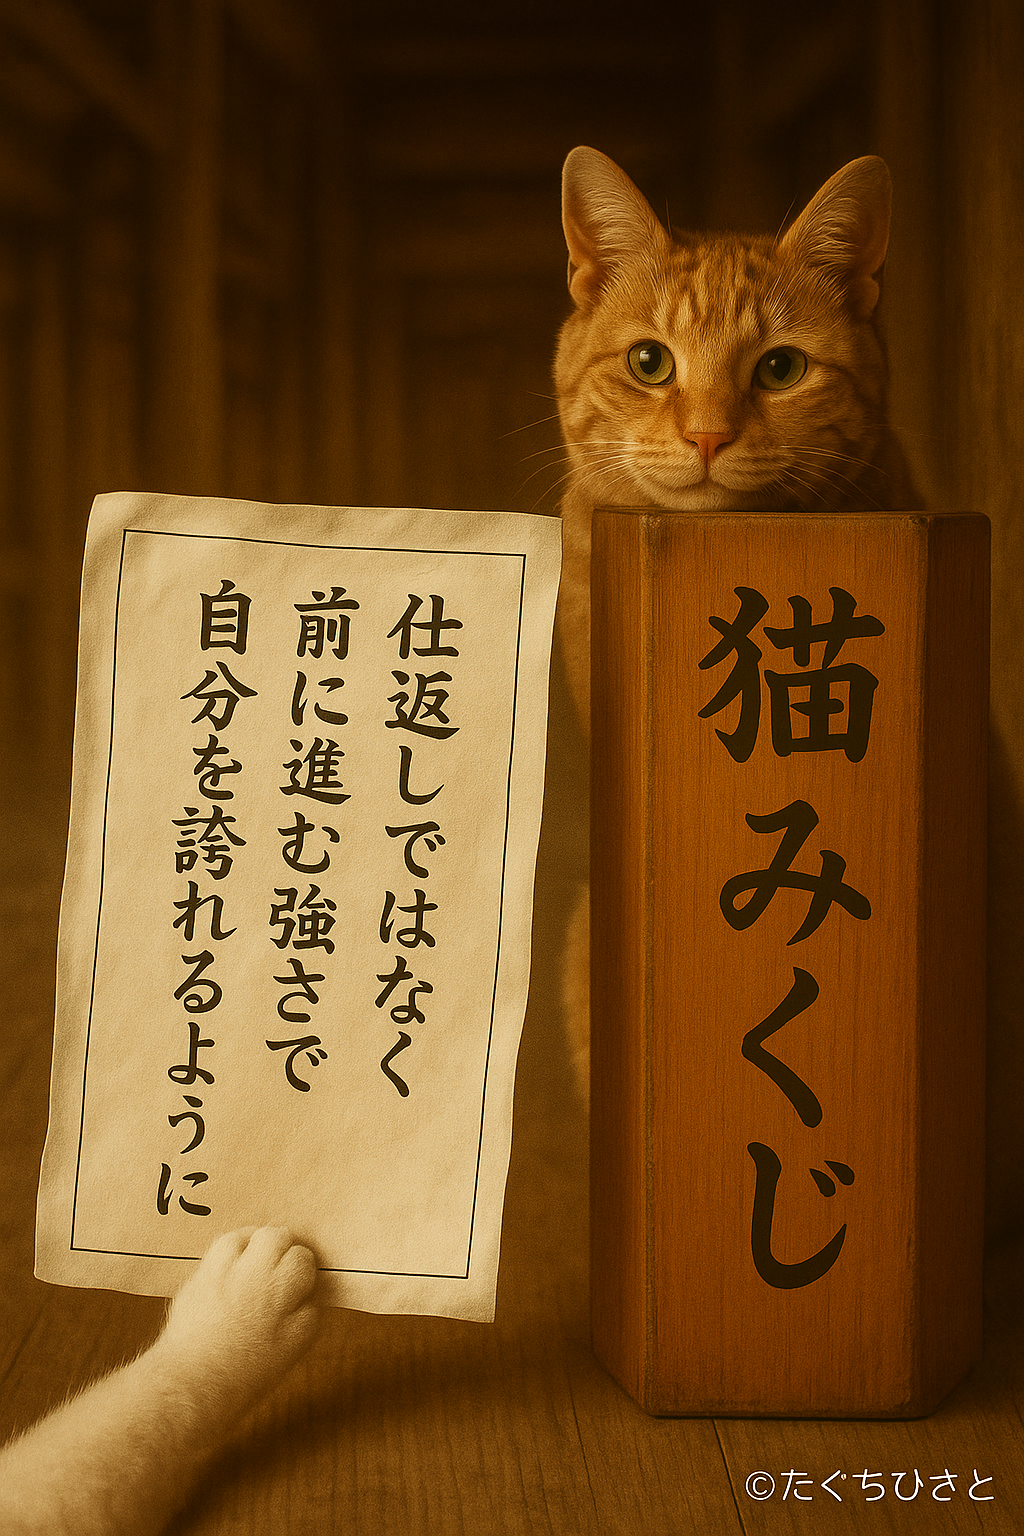 仕返しではなく
前に進む強さで
自分を誇れるように
猫みくじ
©たぐちひさと